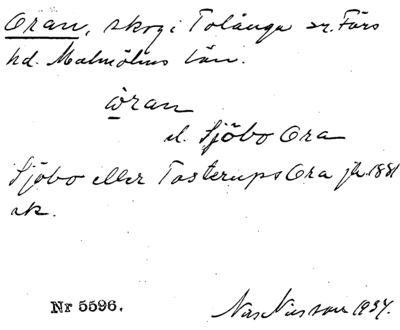 Oran, skog i Tolånga sn. Färs
hd. Malmöhus län.
òran
el. Sjöbo Ora
Sjöbo eller Tosterups Ora jb. 1881
sk.
Nr 5596.
Nils Nilsson 1934.